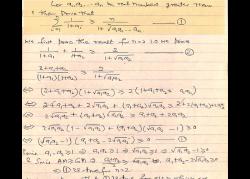 For a₁, a₂, ... aₙ be real numbers greater than
1 then prove that
Σ 1/(1+aᵢ) ≥ n/(1+ⁿ√(a₁a₂...aₙ)) ①
We first prove the result for n=2 i.e we prove
1/(1+a₁) + 1/(1+a₂) ≥ 2/(1+√(a₁a₂))
⟺ (2+a₁+a₂)/((1+a₁)(1+a₂)) ≥ 2/(1+√(a₁a₂))
⟺ (2+a₁+a₂)(1+√(a₁a₂)) ≥ 2(1+a₁+a₂+a₁a₂)
⟺ 2+a₁+a₂+2√(a₁a₂)+(a₁+a₂)√(a₁a₂) ≥ 2+2(a₁+a₂)+2a₁a₂
⟺ 2√(a₁a₂)+(a₁+a₂)√(a₁a₂) ≥ a₁+a₂+2a₁a₂
⟺ 2√(a₁a₂)(1-√(a₁a₂))+(a₁+a₂)(√(a₁a₂)-1) ≥ 0
⟺ (√(a₁a₂)-1)(a₁+a₂-2√(a₁a₂)) ≥ 0
Since a₁, a₂ ≥ 1 ⇒ a₁a₂ ≥ 1 ⇒ √(a₁a₂) ≥ 1 ⇒ √(a₁a₂)-1 ≥ 0
& Since AM≥GM ⇒ (a₁+a₂)/2 ≥ √(a₁a₂) ⇒ a₁+a₂-2√(a₁a₂) ≥ 0
⇒ ① is true for n=2